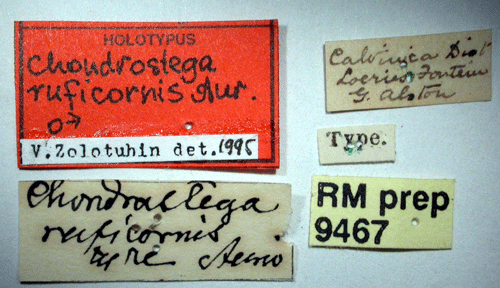 HOLOTYPUS
Chondrostega
ruficornis Aur.
♂
V. Zolotuhin det. 1995
Chondrastega
ruficornis
Type Auriv
Calvinica Dist
Loeries Fontein
G. Alston
Type.
RM prep
9467